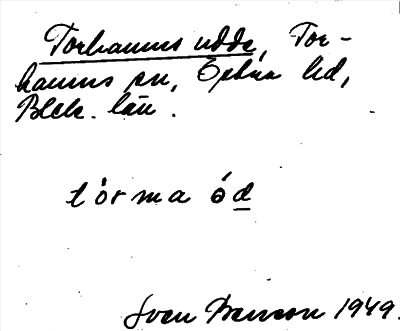 Torhamns udde, Tor-
hamns sn, Östra hd,
Blek. län.
tórma ó̱d
Sven Benson 1949.